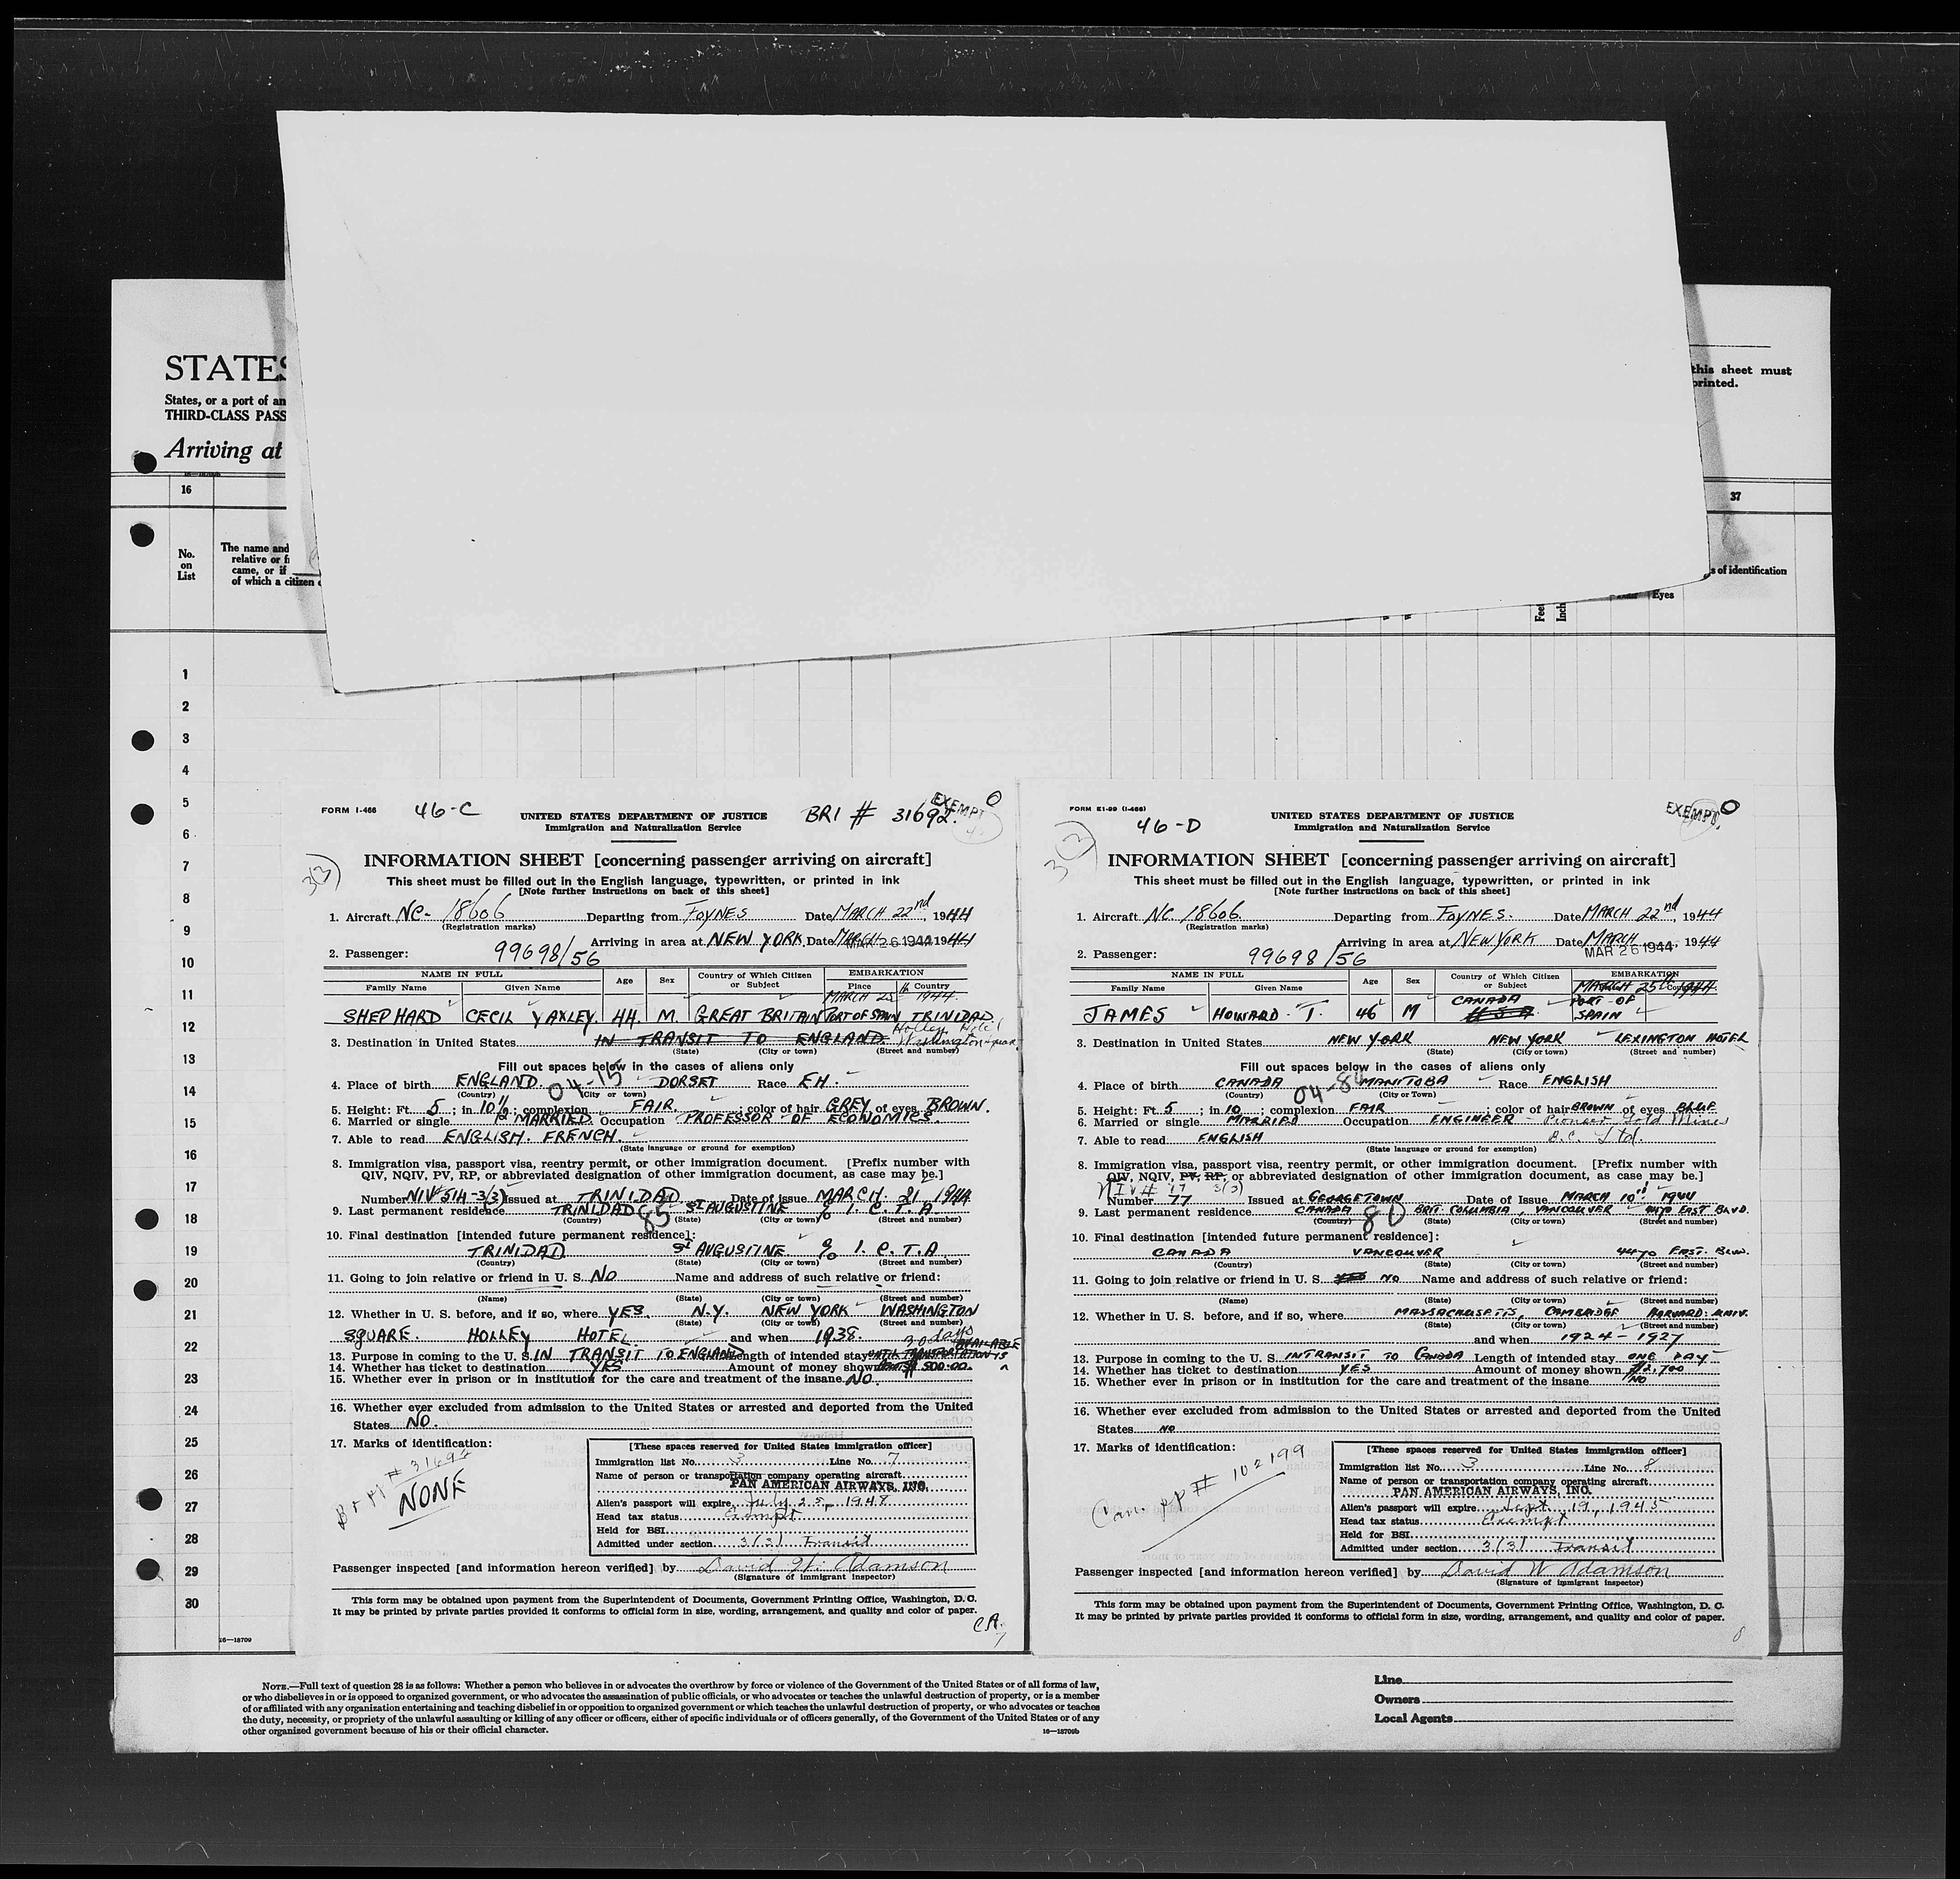 STATES
States, or a port of an
THIRD-CLASS PASS
Arriving at
this sheet must
printed.
16
37
No.
on
List
The name and
relative or f
came, or if
of which a citizen
s of identification
Feet
Inch
Eyes
1
2
3
4
5
6
7
8
9
10
11
12
13
14
15
16
17
18
19
20
21
22
23
24
25
26
27
28
29
30
16—18709
FORM I-466
46-C
UNITED STATES DEPARTMENT OF JUSTICE
Immigration and Naturalization Service
BRI # 31692.
EXEMPT
3(3)
INFORMATION SHEET [concerning passenger arriving on aircraft]
This sheet must be filled out in the English language, typewritten, or printed in ink
[Note further instructions on back of this sheet]
1. Aircraft NC- 18606 Departing from FOYNES Date MARCH 22nd, 1944
(Registration marks)
Arriving in area at NEW YORK Date MARCH MAR 26 1944 1944
2. Passenger: 99698/56
NAME IN FULL Age Sex Country of Which Citizen or Subject EMBARKATION
Family Name Given Name Place Country
MARCH 25th 1944.
SHEPHARD CECIL YAXLEY. 44. M. GREAT BRITAIN PORT OF SPAIN TRINIDAD.
3. Destination in United States IN TRANSIT TO ENGLAND. Holley Hotel Washington Square
(State) (City or town) (Street and number)
Fill out spaces below in the cases of aliens only
4. Place of birth ENGLAND. 04-15 DORSET Race EH.
(Country) (City or town)
5. Height: Ft. 5; in 10 1/2; complexion FAIR; color of hair GREY of eyes BROWN.
6. Married or single MARRIED. Occupation PROFESSOR OF ECONOMICS.
7. Able to read ENGLISH. FRENCH.
(State language or ground for exemption)
8. Immigration visa, passport visa, reentry permit, or other immigration document. [Prefix number with
QIV, NQIV, PV, RP, or abbreviated designation of other immigration document, as case may be.]
Number NIV 514-3(3) Issued at TRINIDAD Date of issue MARCH. 21, 1944
9. Last permanent residence TRINIDAD 85 St AUGUSTINE % I. C. T. A.
(Country) (State) (City or town) (Street and number)
10. Final destination [intended future permanent residence]:
TRINIDAD St AUGUSTINE. % I. C. T. A.
(Country) (State) (City or town) (Street and number)
11. Going to join relative or friend in U. S. NO Name and address of such relative or friend:
(Name) (State) (City or town) (Street and number)
12. Whether in U. S. before, and if so, where YES. N.Y. NEW YORK WASHINGTON
(State) (City or town) (Street and number)
SQUARE. HOLLEY HOTEL and when 1938.
30 days
13. Purpose in coming to the U. S. IN TRANSIT TO ENGLAND Length of intended stay UNTIL TRANSPORTATION IS AVAILABLE
14. Whether has ticket to destination YES Amount of money shown $ 500.00.
15. Whether ever in prison or in institution for the care and treatment of the insane NO.
16. Whether ever excluded from admission to the United States or arrested and deported from the United
States NO.
17. Marks of identification:
NONE
[These spaces reserved for United States immigration officer]
Immigration list No. 3 Line No. 7
Name of person or transportation company operating aircraft
PAN AMERICAN AIRWAYS, INC.
Alien's passport will expire July 25, 1948
Head tax status Exempt
Held for BSI
Admitted under section 3(3) Transit
Passenger inspected [and information hereon verified] by David W. Adamson
(Signature of immigrant inspector)
This form may be obtained upon payment from the Superintendent of Documents, Government Printing Office, Washington, D. C.
It may be printed by private parties provided it conforms to official form in size, wording, arrangement, and quality and color of paper.
C.A.
7
FORM E1-99 (I-466)
46-D
UNITED STATES DEPARTMENT OF JUSTICE
Immigration and Naturalization Service
EXEMPT
3(2)
INFORMATION SHEET [concerning passenger arriving on aircraft]
This sheet must be filled out in the English language, typewritten, or printed in ink
[Note further instructions on back of this sheet]
1. Aircraft NC 18606. Departing from FOYNES. Date MARCH 22nd, 1944
(Registration marks)
Arriving in area at NEW YORK Date MARCH, 1944
MAR 26 1944
2. Passenger: 99698/56
NAME IN FULL Age Sex Country of Which Citizen or Subject EMBARKATION
Family Name Given Name
MARCH 25th 1944
JAMES HOWARD. T. 46 M CANADA USA PORT OF SPAIN
3. Destination in United States NEW YORK NEW YORK LEXINGTON HOTEL
(State) (City or town) (Street and number)
Fill out spaces below in the cases of aliens only
4. Place of birth CANADA 04-80 MANITOBA Race ENGLISH
(Country) (City or Town)
5. Height: Ft. 5; in 10; complexion FAIR; color of hair BROWN of eyes BLUE
6. Married or single MARRIED Occupation ENGINEER - Pioneer Gold Mines
7. Able to read ENGLISH B.C. Ltd.
(State language or ground for exemption)
8. Immigration visa, passport visa, reentry permit, or other immigration document. [Prefix number with
QIV, NQIV, PV, RP, or abbreviated designation of other immigration document, as case may be.]
NIV # 77 3(3)
Number 77 Issued at GEORGETOWN Date of Issue MARCH 10th 1944
9. Last permanent residence CANADA 80 BRIT. COLUMBIA, VANCOUVER 4470 EAST BLVD.
(Country) (State) (City or town) (Street and number)
10. Final destination [intended future permanent residence]:
CANADA VANCOUVER 4470 EAST. BLVD.
(Country) (State) (City or town) (Street and number)
11. Going to join relative or friend in U. S. NO Name and address of such relative or friend:
(Name) (State) (City or town) (Street and number)
12. Whether in U. S. before, and if so, where MASSACHUSETTS, CAMBRIDGE HARVARD. UNIV.
(State) (City or town) (Street and number)
and when 1924 - 1927
13. Purpose in coming to the U. S. IN TRANSIT TO CANADA Length of intended stay ONE DAY
14. Whether has ticket to destination YES Amount of money shown $2,700
15. Whether ever in prison or in institution for the care and treatment of the insane NO
16. Whether ever excluded from admission to the United States or arrested and deported from the United
States NO
17. Marks of identification:
Can. pp #
[These spaces reserved for United States immigration officer]
Immigration list No. 3 Line No. 8
Name of person or transportation company operating aircraft
PAN AMERICAN AIRWAYS, INC.
Alien's passport will expire Sept 19, 1945
Head tax status Exempt
Held for BSI
Admitted under section 3(3) Transit
Passenger inspected [and information hereon verified] by David W Adamson
(Signature of immigrant inspector)
This form may be obtained upon payment from the Superintendent of Documents, Government Printing Office, Washington, D. C.
It may be printed by private parties provided it conforms to official form in size, wording, arrangement, and quality and color of paper.
8
NOTE.—Full text of question 28 is as follows: Whether a person who believes in or advocates the overthrow by force or violence of the Government of the United States or of all forms of law,
or who disbelieves in or is opposed to organized government, or who advocates the assassination of public officials, or who advocates or teaches the unlawful destruction of property, or is a member
of or affiliated with any organization entertaining and teaching disbelief in or opposition to organized government or which teaches the unlawful destruction of property, or who advocates or teaches
the duty, necessity, or propriety of the unlawful assaulting or killing of any officer or officers, either of specific individuals or of officers generally, of the Government of the United States or of any
other organized government because of his or their official character.
16—18709b
Line
Owners
Local Agents